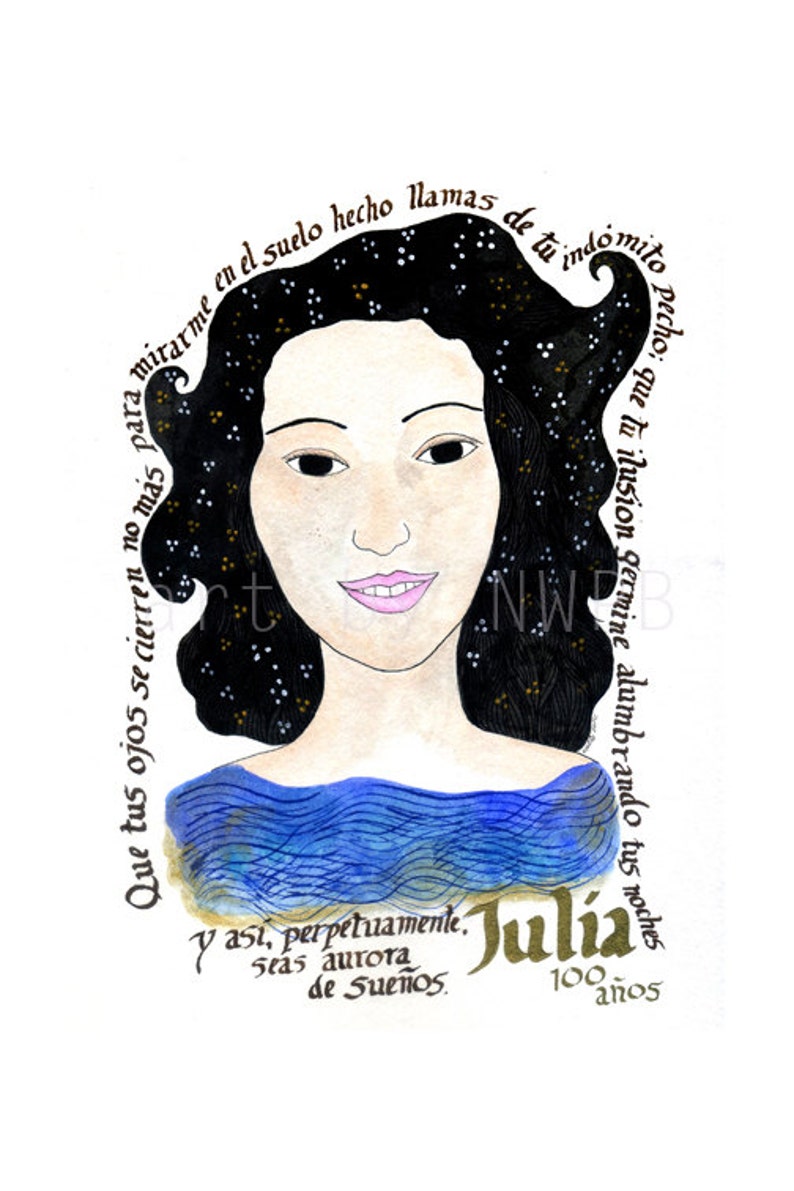 Que tus ojos se cierren no más para mirarme en el suelo hecho llamas de tu indómito pecho; que tu ilusión germine alumbrando tus noches
y así, perpetuamente,
seas aurora
de sueños.
Julia
100
años
art by NWFB